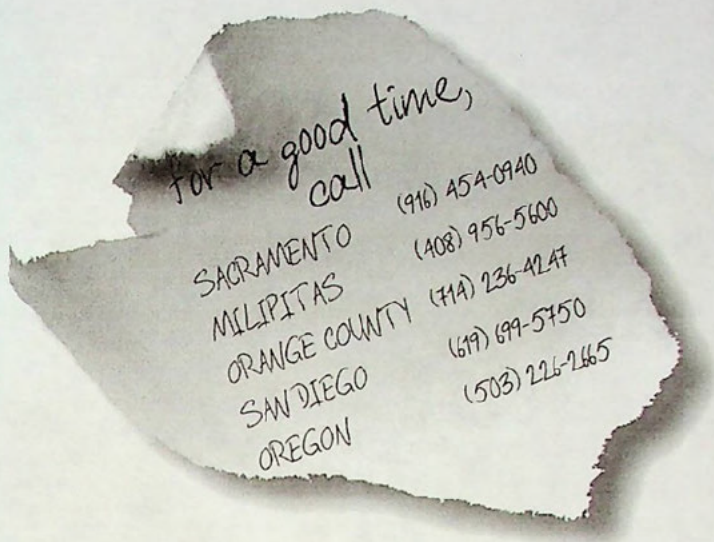 for a good time,
call
SACRAMENTO (916) 454-0940
MILIPITAS (408) 956-5600
ORANGE COUNTY (714) 236-4247
SAN DIEGO (619) 699-5750
OREGON (503) 226-2665